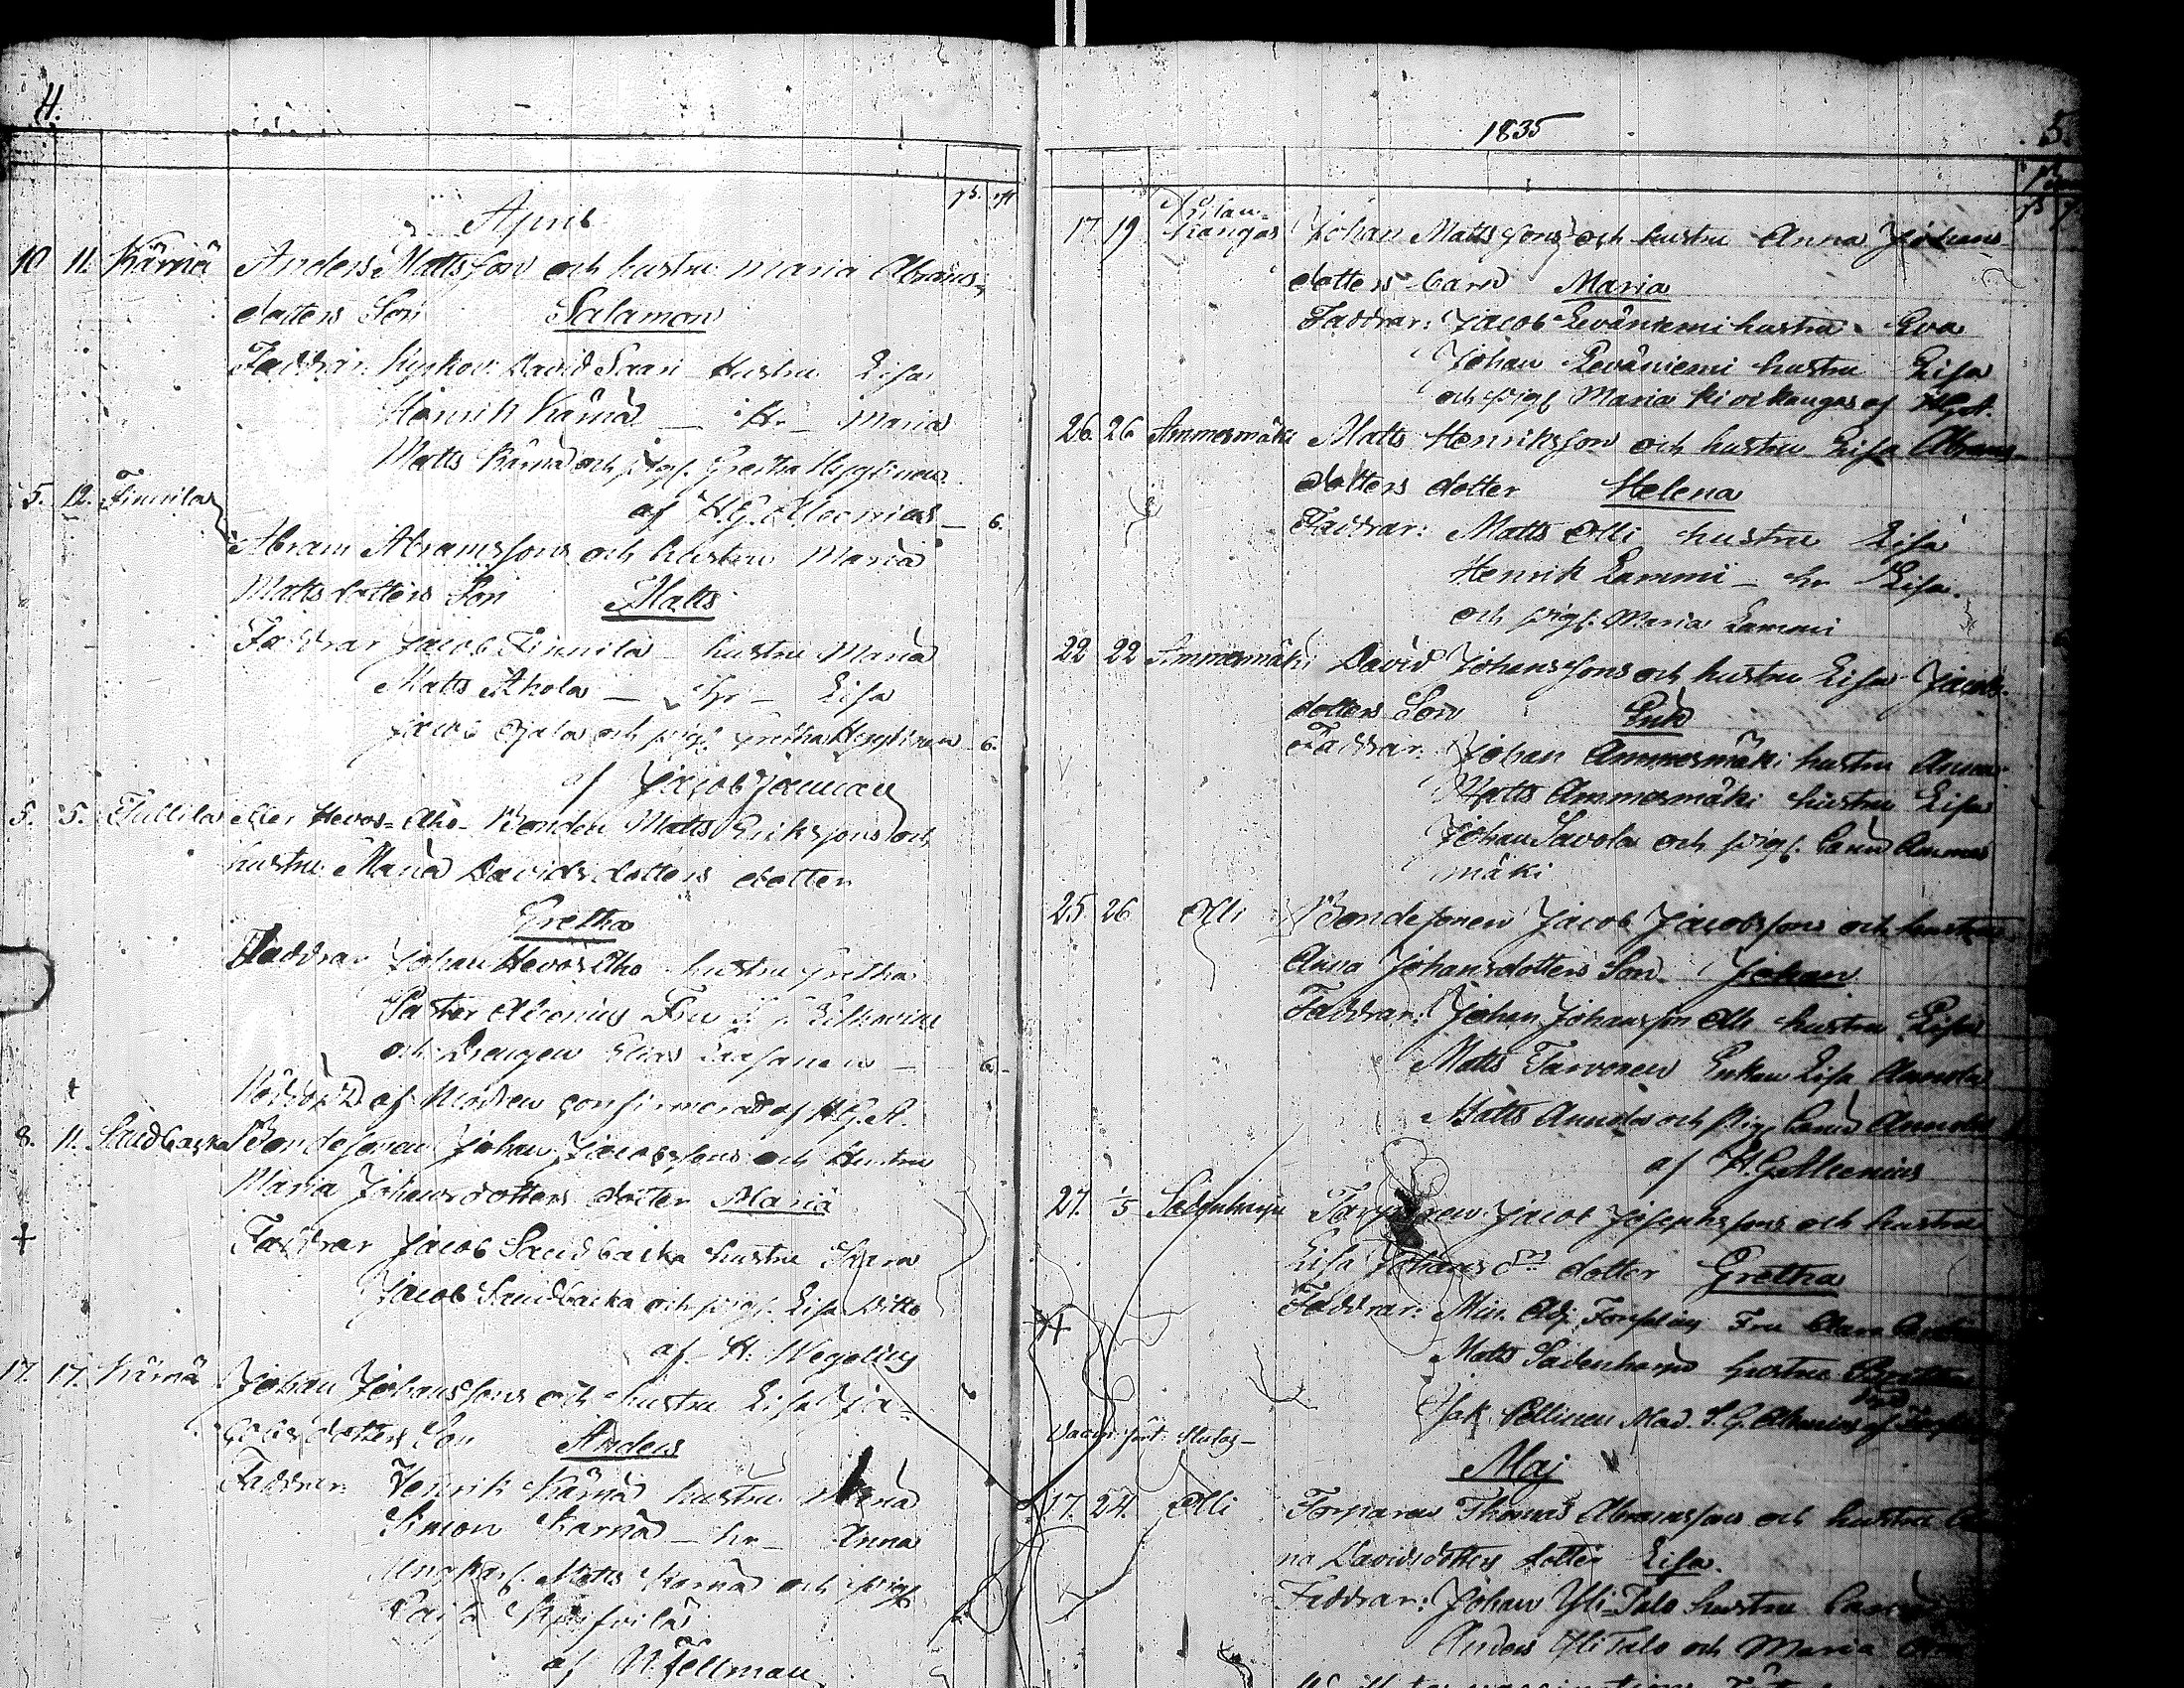 4.
April
10 11. Kärnä Anders Mattsson och hustru Maria Abrams-
dotters Son Salamon
Faddrar. Kyrkov: David Saari Hustru Lisa
Henrik Kärnä — H:- Maria
Matts Kärnä och pig. Gretha Hyytinen
af H.G. Alcenius — 6.
5. 12. Finnilas
Abram Abramssons och hustru Maria
Mattsdotters Son Matts
Faddrar Jacob Finnila hustru Maria
Matts Ahola — Hr — Lisa
Jacob Ojala och pig. Gretha Hyytinen 6.
af Jacob
5. 5. Tullila eller Hevos-Aho- Bonden Matts Erikssons och
hustru Maria Davidsdotters dotter
Gretha
Faddrar Johan Hevos Aho hustru Gretha
Pastor Alcenius Fru
och Drengen Elias 6.
Nöddöpt af Modren confirmerad af H.G.A.
8. 11. Sandbacka Bondesonen Johan Jacobssons och Hustru
Maria Johansdotters dotter Maria
Faddrar Jacob Sandbacka hustru Sara
Jacob Sandbacka och pig. Lisa ditto
af H. Wegelius
17. 17. Kärnä Johan Johanssons och hustru Lisa Ja-
cobsdotters Son Anders
Faddrar. Henrik Kärnä hustru Maria
Simon Kärnä — hr — Anna
Ungkarl. Matts Kärnä och pig.
Caisa
af N. Fellman
1835 5.
17. 19 Kilan-
kangas Johan Mattssons och hustru Anna Johans-
dotters barn Maria
Faddrar: Jacob Leväniemi hustru Eva
Johan Leväniemi hustru Lisa
och pig. Maria Kivikangas af H.G.A.
26. 26 Ammesmäki Matts Henrikssons och hustru Lisa Abrams-
dotters dotter Helena
Faddrar: Matts Olli hustru Lisa
Henrik Lammi — hr Lisa.
och pig. Maria Lammi
22 22 Ammesmäki David Johanssons och hustru Lisa Jacobs-
dotters Son Erik
Faddrar. Johan Ammesmäki hustru Anna
Matts Ammesmäki hustru Lisa
Johan Savola och pig. Carin Ammes
mäki
25. 26 Olli Bondesonen Jacob Jacobssons och hustru
Anna Johansdotters Son Johan
Faddrar: Johan Johansson Olli hustru Lisa
Matts Tarvonen Enkan Lisa Annola
Matts Annola och Pig. Carin Annola
af H.G. Alcenius
27. 1/5 Sadenharju Torparen Jacob Josephssons och hustru
Lisa Johans drs dotter Gretha
Faddrar: Min. Adj. Forssling Fru Clara
Matts Sadenharju hustru Britha
Isak Pellinen Mad. S. G. Alcenius af
Vaccin. fört. slutas —
Maj
17. 24. Olli Torparen Thomas Abramssons och hustru
na Davidsdotters dotter Lisa.
Faddrar: Johan Yli-Talo hustru Carin
Anders Yli Talo och Maria